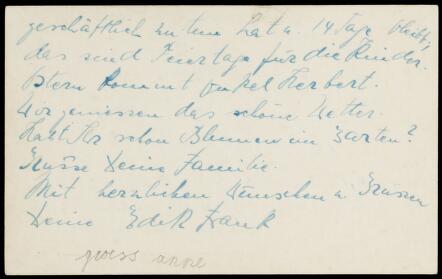 geschäftlich zu tun hat u. 14 Tage bleibt,
das sind Feiertage für die Kinder.
Ostern kommt Onkel Herbert.
Wir geniessen das schöne Wetter.
Habt Ihr schon Blumen im Garten?
Grüsse Deine Familie.
Mit herzlichen Wünschen u. Grüssen
Deine Edith Frank
gruess anne